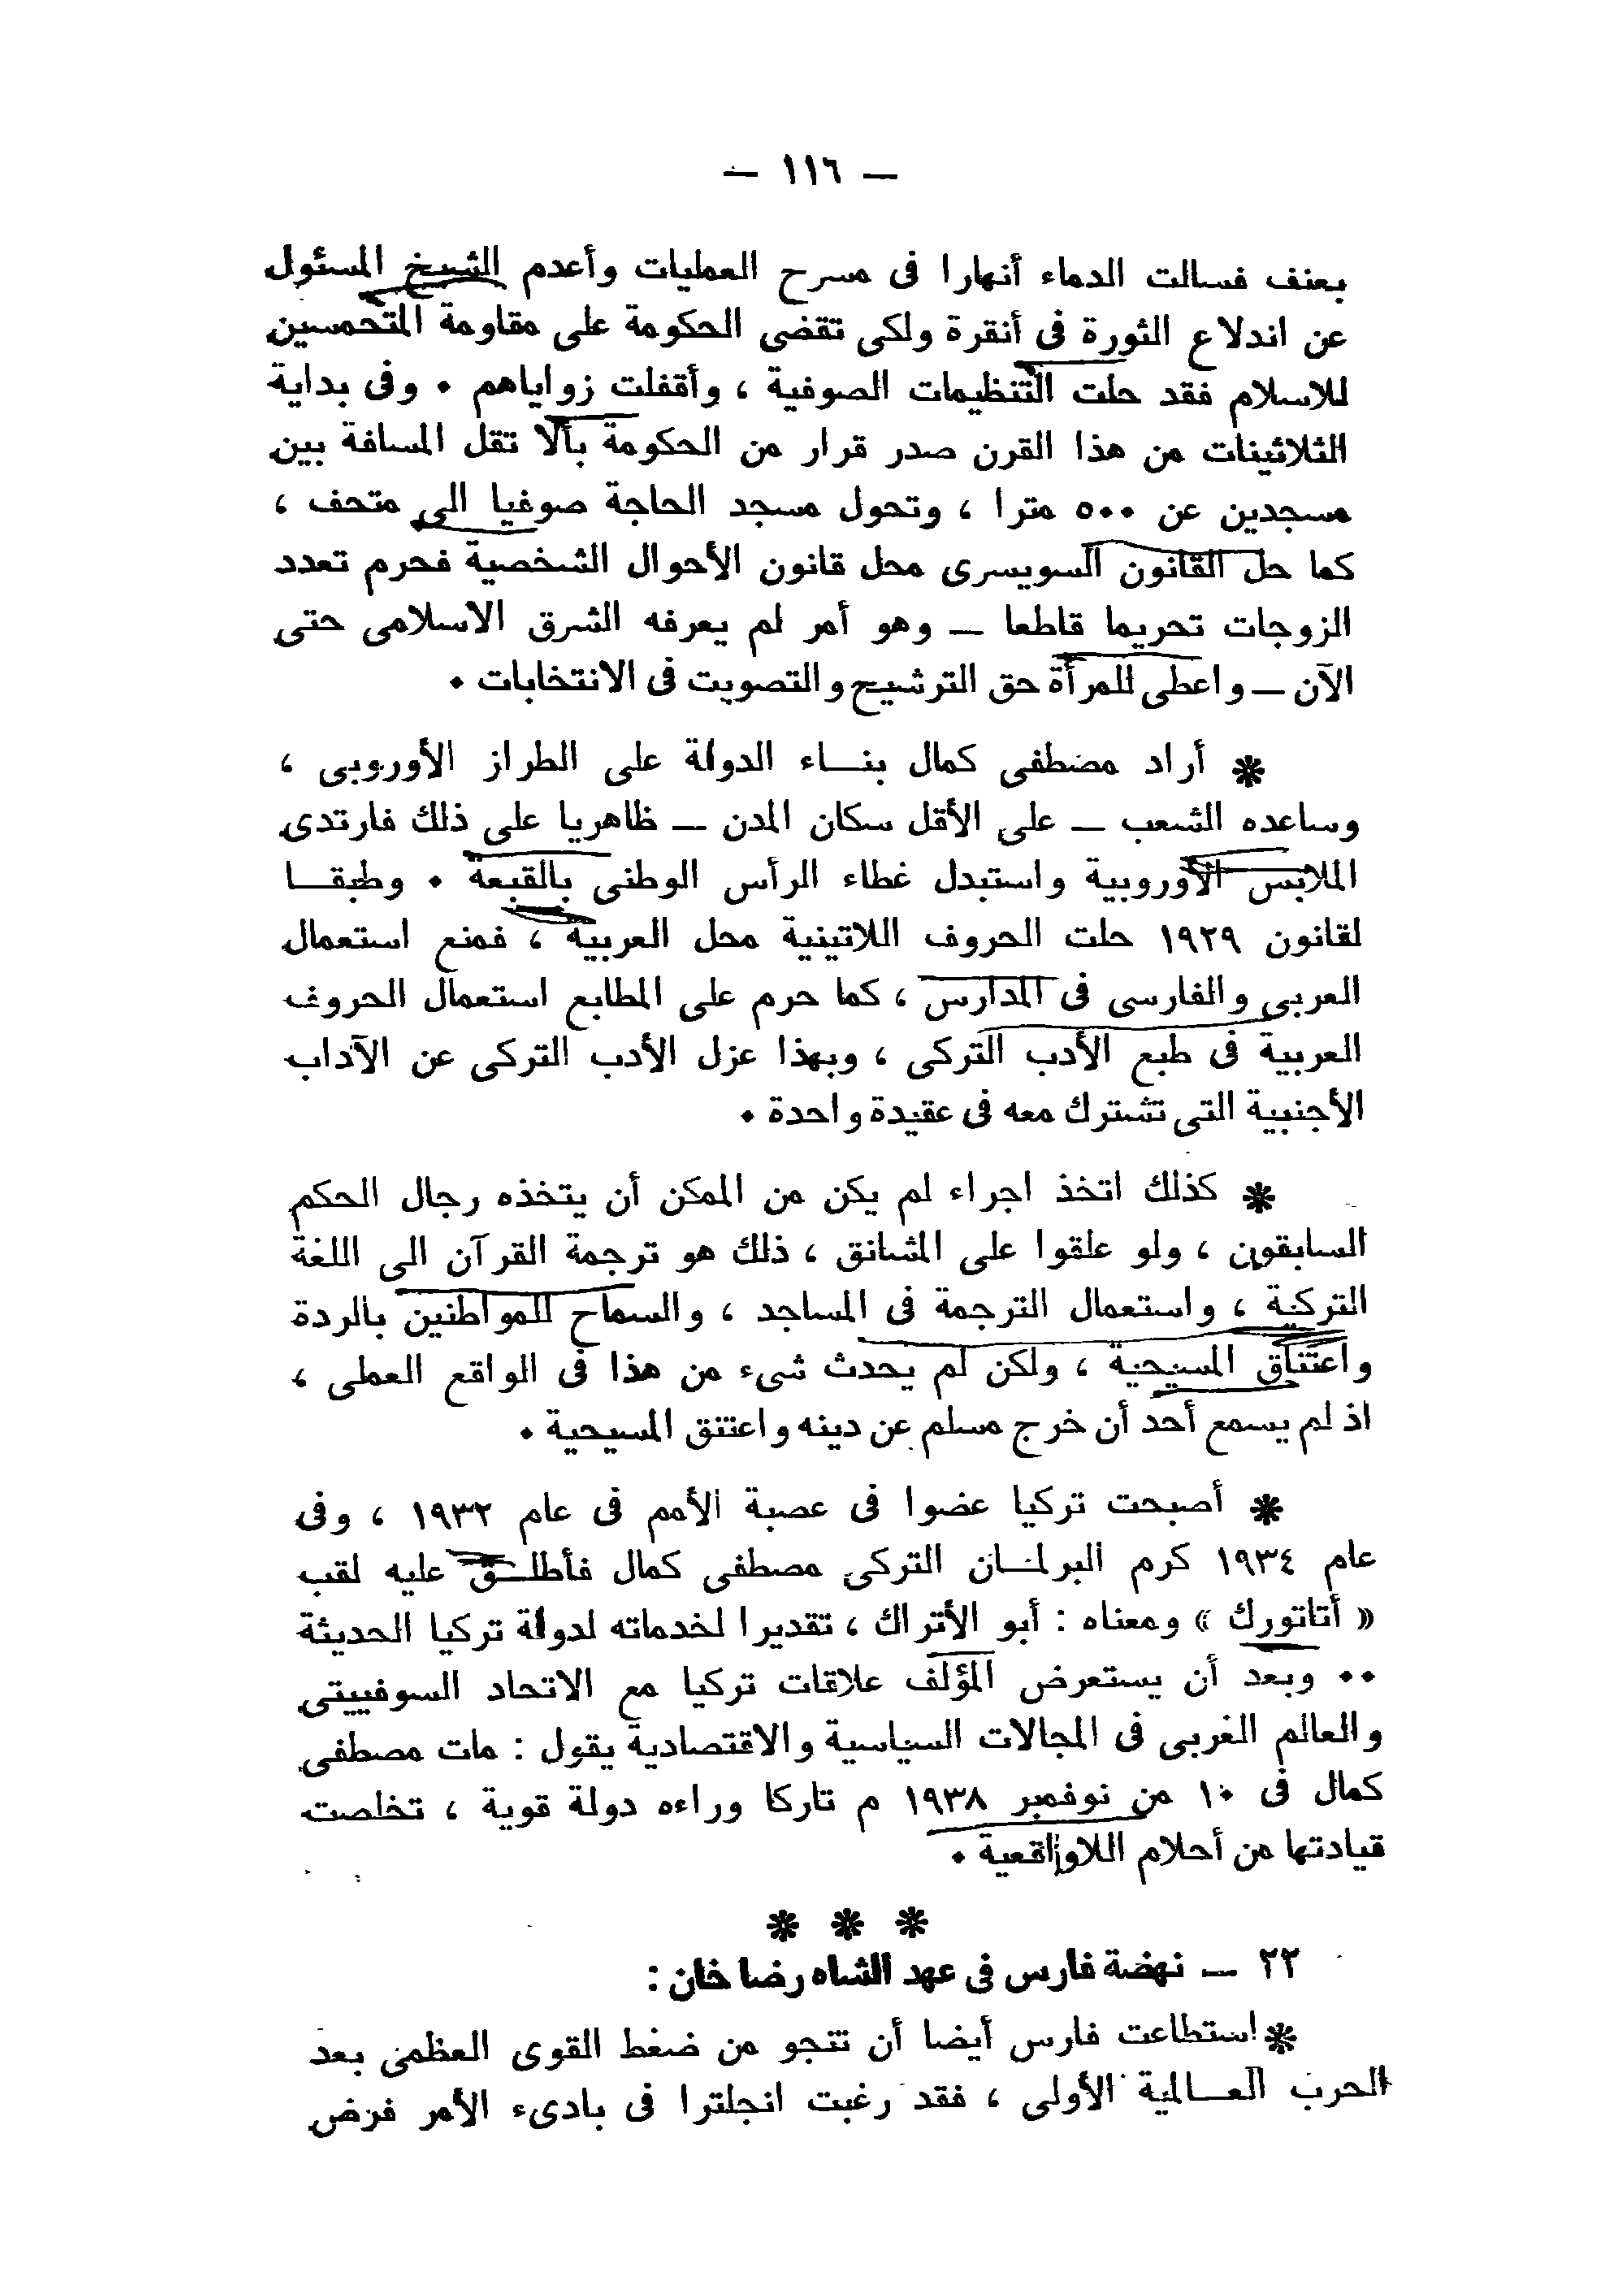 — ١١٦ —
بعنف فسالت الدماء أنهارا فى مسرح العمليات وأعدم الشيخ المسئول
عن اندلاع الثورة فى أنقرة ولكى تقضى الحكومة على مقاومة المتحمسين
للاسلام فقد حلت التنظيمات الصوفية ، وأقفلت زواياهم . وفى بداية
الثلاثينات من هذا القرن صدر قرار من الحكومة بألا تقل المسافة بين
مسجدين عن ٥٠٠ مترا ، وتحول مسجد الحاجة صوفيا الى متحف ،
كما حل القانون السويسرى محل قانون الأحوال الشخصية فحرم تعدد
الزوجات تحريما قاطعا — وهو أمر لم يعرفه الشرق الاسلامى حتى
الآن — واعطى للمرأة حق الترشيح والتصويت فى الانتخابات .
* أراد مصطفى كمال بنـــاء الدولة على الطراز الأوروبى ،
وساعده الشعب — على الأقل سكان المدن — ظاهريا على ذلك فارتدى
الملابس الأوروبية واستبدل غطاء الرأس الوطنى بالقبعة . وطبقــا
لقانون ١٩٢٩ حلت الحروف اللاتينية محل العربية ، فمنع استعمال
العربى والفارسى فى المدارس ، كما حرم على المطابع استعمال الحروف
العربية فى طبع الأدب التركى ، وبهذا عزل الأدب التركى عن الآداب
الأجنبية التى تشترك معه فى عقيدة واحدة .
* كذلك اتخذ اجراء لم يكن من الممكن أن يتخذه رجال الحكم
السابقون ، ولو علقوا على المشانق ، ذلك هو ترجمة القرآن الى اللغة
التركية ، واستعمال الترجمة فى المساجد ، والسماح للمواطنين بالردة
واعتناق المسيحية ، ولكن لم يحدث شىء من هذا فى الواقع العملى ،
اذ لم يسمع أحد أن خرج مسلم عن دينه واعتنق المسيحية .
* أصبحت تركيا عضوا فى عصبة الأمم فى عام ١٩٣٢ ، وفى
عام ١٩٣٤ كرم البرلمــان التركى مصطفى كمال فأطلــق عليه لقب
« أتاتورك » ومعناه : أبو الأتراك ، تقديرا لخدماته لدولة تركيا الحديثة
.. وبعد أن يستعرض المؤلف علاقات تركيا مع الاتحاد السوفييتى
والعالم الغربى فى المجالات السياسية والاقتصادية يقول : مات مصطفى
كمال فى ١٠ من نوفمبر ١٩٣٨ م تاركا وراءه دولة قوية ، تخلصت
قيادتها من أحلام اللاواقعية .
* * *
٢٢ — نهضة فارس فى عهد الشاه رضا خان :
* استطاعت فارس أيضا أن تنجو من ضغط القوى العظمى بعد
الحرب العــالمية الأولى ، فقد رغبت انجلترا فى بادىء الأمر فرض